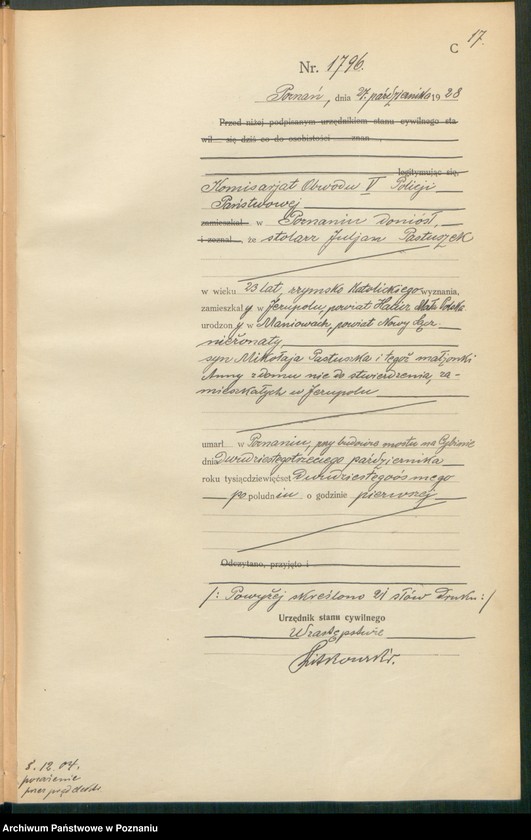 C 17.
Nr. 1796.
Poznań, dnia 27. października 1928
Przed niżej podpisanym urzędnikiem stanu cywilnego sta-
wił się dziś co do osobistości znan ,
legitymując się,
Komisarjat Obwodu V Policji
Państwowej
zamieszkał w Poznaniu doniósł,
i zeznał, że stolarz Juljan Pastuszek
w wieku 23 lat, rzymsko katolickiego wyznania,
zamieszkały w Jezupolu, powiat Halicz Mała Polska
urodzony w Maniowach, powiat Nowy
nieżonaty,
syn Mikołaja Pastuszka i tegoż małżonki
Anny z domu nie do stwierdzenia, za-
mieszkałych w Jezupolu
umarł w Poznaniu, przy budowie mostu na Cybinie
dnia Dwudziestegotrzeciego października
roku tysiącdziewięćset Dwudziestegoósmego
po południu o godzinie pierwszej
Odczytano, przyjęto i
/: Powyżej skreślono 21 słów druku :/
Urzędnik stanu cywilnego
W zastępstwie
8. 12. 04.
porażenie
Archiwum Państwowe w Poznaniu